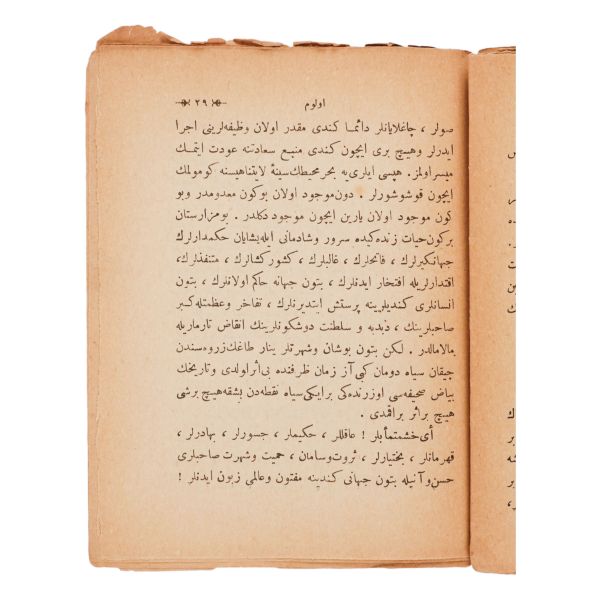 اولوم ٢٩
صولر ، چاغلايانلر دائما كندى مقدر اولان وظيفه‌لرينى اجرا
ايدرلر وهيچ برى ايچون كندى منبع سعادتنه عودت ايتمك
ميسر اولمز. هپسى ايلرى‌يه بحر محيطك سينهٔ لايتناهيسنه كومولمك
ايچون قوشوشورلر . دون موجود اولان بوكون معدومدر وبو
كون موجود اولان يارين ايچون موجود دكلدر . بو مزارستان
بركون حيات زنده‌كيده سرور وشادمانى ايله يشايان حكمدارلرك
جهانكيرلرك ، فاتحلرك ، غالبلرك ، كشوركشالرك ، متنفذلرك،
اقتدارلريله افتخار ايدنلرك ، بتون جهانه حاكم اولانلرك ، بتون
انسانلرى كنديلرينه پرستش ايتديرنلرك ، تفاخر وعظمتله كبر
صاحبلرينك ، دبدبه و سلطنت دوشكونلرينك انقاض تارماريله
مالامالدر . لكن بتون بوشان وشهرتلر ينار طاغك زروه‌سندن
چيقان سياه دومان كبى آز زمان ظرفنده بى‌اثر اولدى وتاريخك
بياض صحيفه‌سى اوزرنده‌كى بر ايكى سياه نقطه‌دن بشقه هيچ برشى
هيچ براثر براقمدى .
أى خشمتمأبلر ! عاقللر ، حكيملر ، جسورلر ، بهادرلر ،
قهرمانلر ، بختيارلر ، ثروت وسامان ، حميت وشهرت صاحبلرى
حسن وآنيله بتون جهانى كندينه مفتون وعالمى زبون ايدنلر !